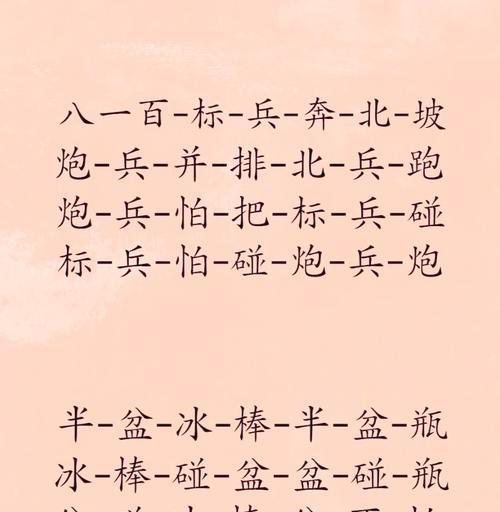 八一百-标-兵-奔-北-坡
炮-兵-并-排-北-兵-跑
炮-兵-怕-把-标-兵-碰
标-兵-怕-碰-炮-兵-炮
半-盆-冰-棒-半-盆-瓶
冰-棒-碰-盆-盆-碰-瓶